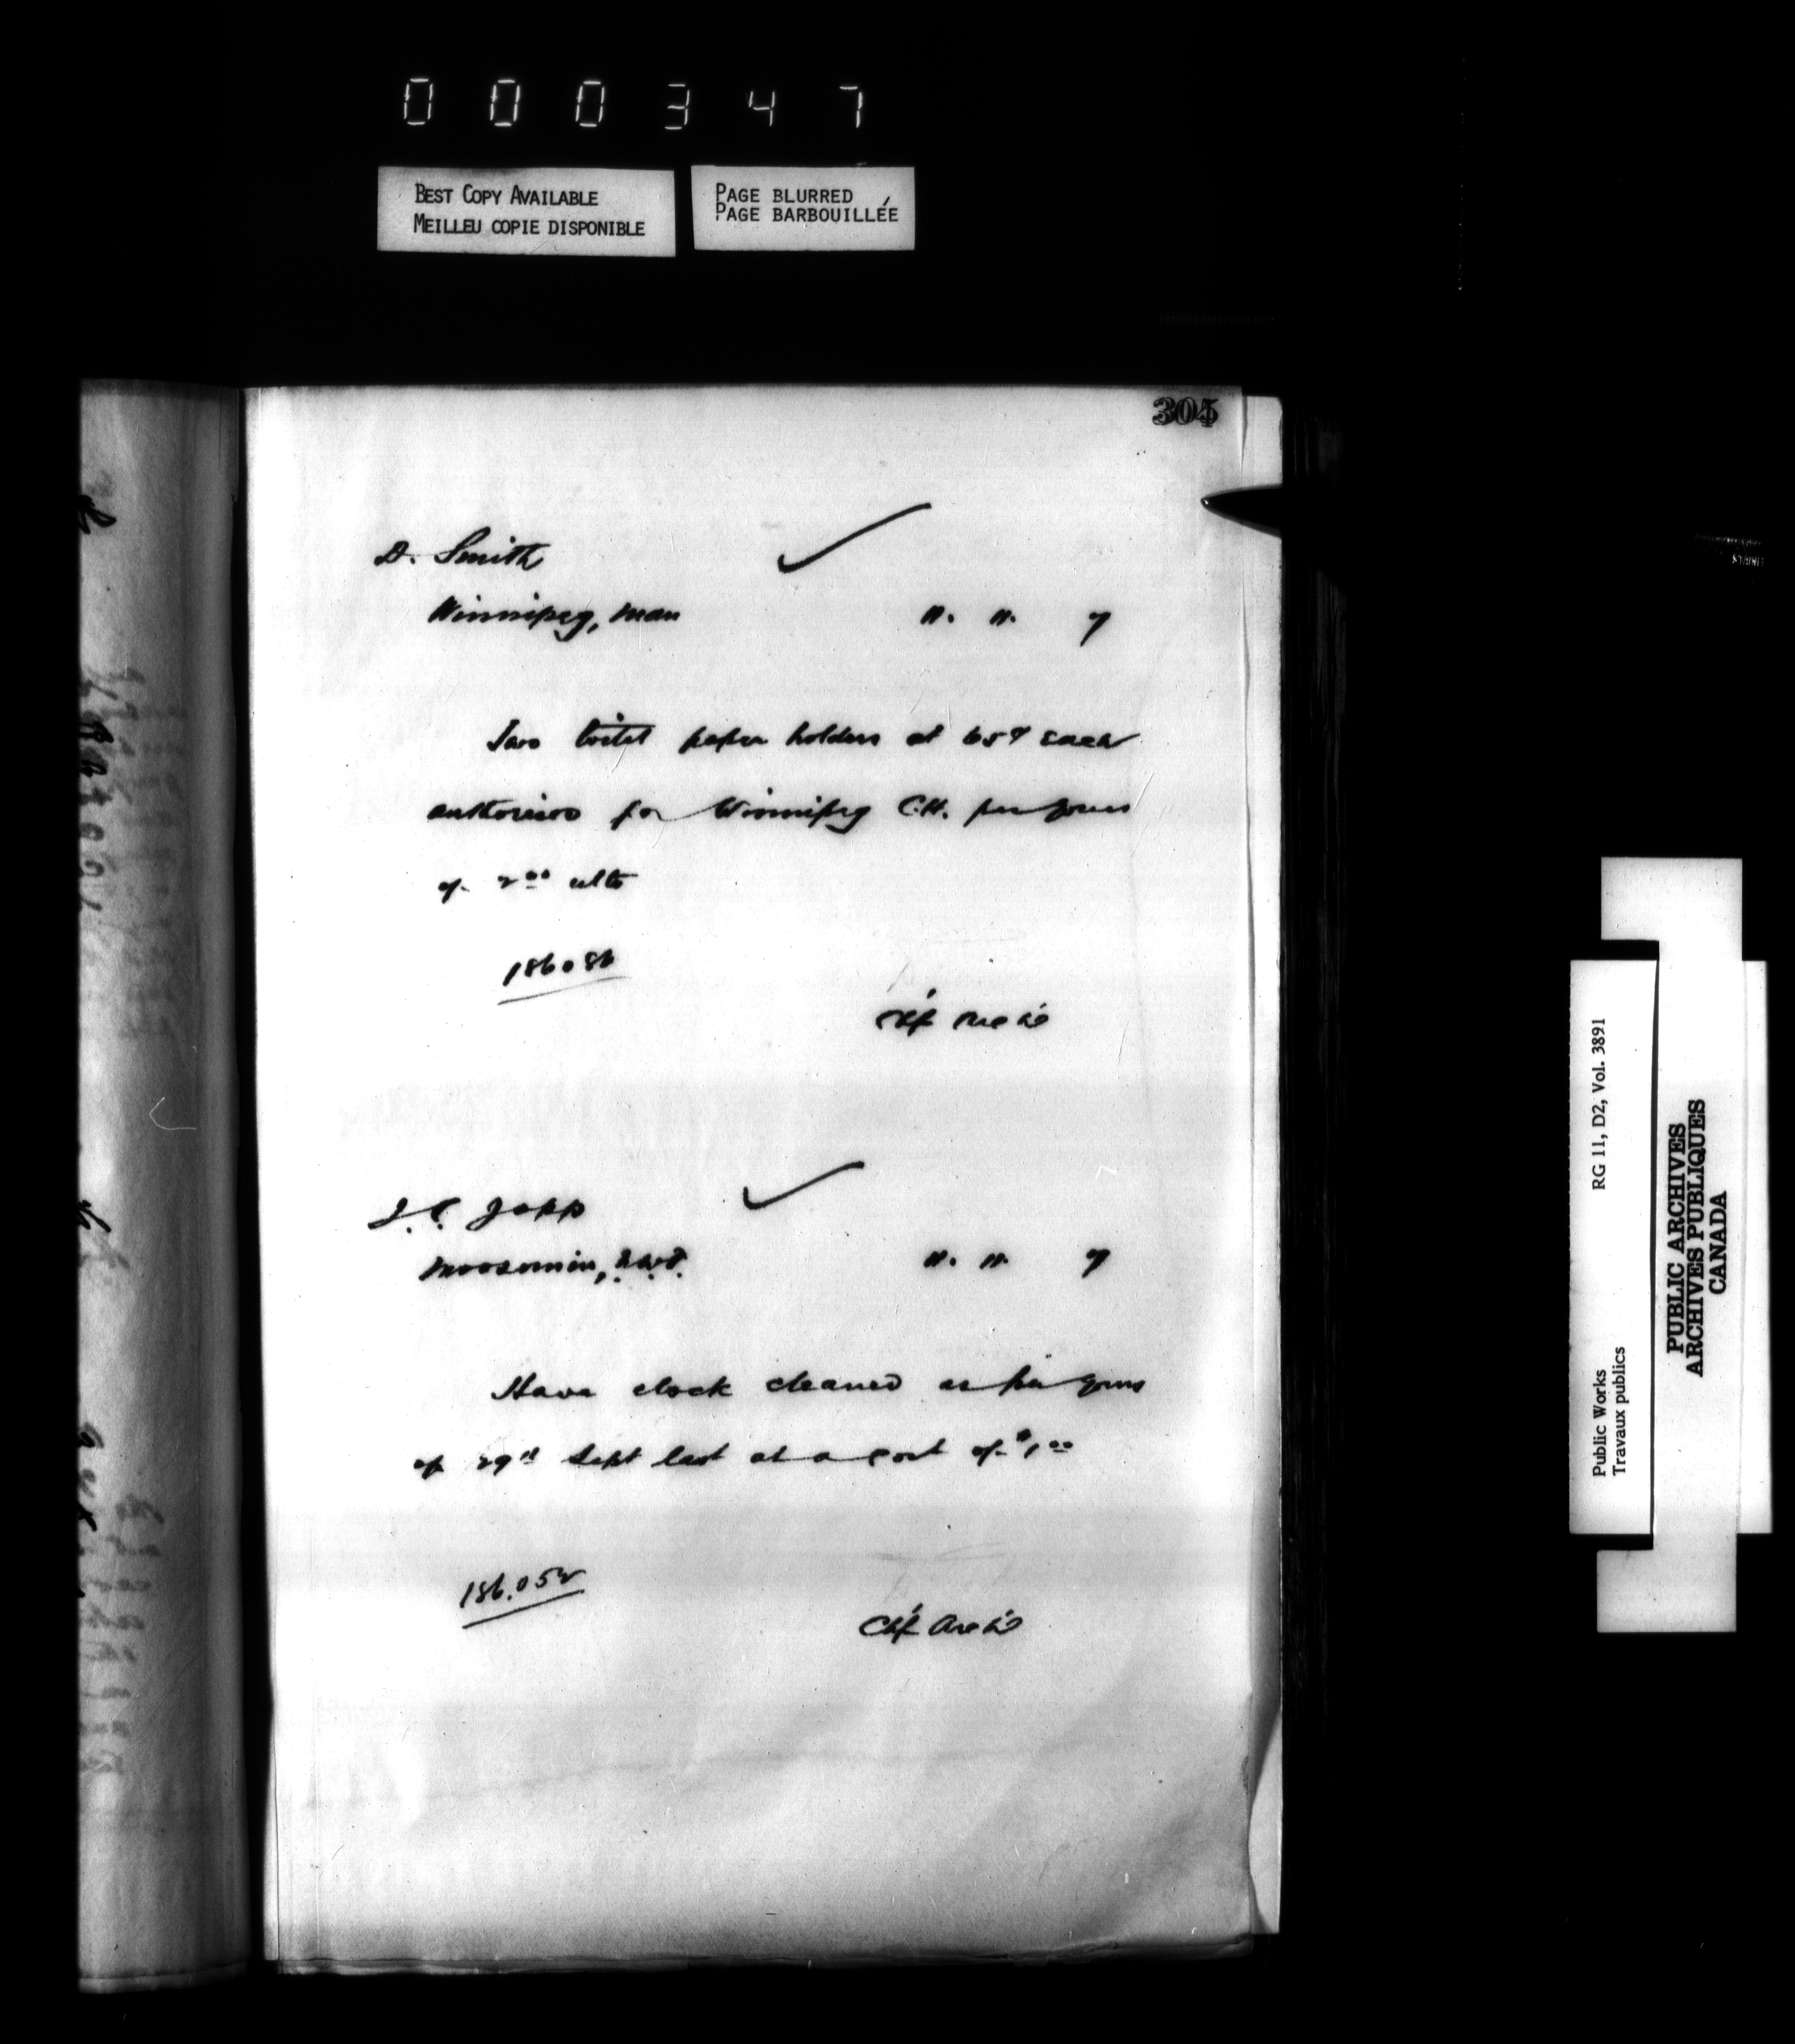 000347
BEST COPY AVAILABLE
MEILLEU COPIE DISPONIBLE
PAGE BLURRED
PAGE BARBOUILLÉE
D. Smith
Winnipeg, Man
Two toilet paper holders at 65¢ each
for Winnipeg C.H. per yours
of 2nd ulto
186086
Chf Archt
Moosomin, N.W.T.
Have clock cleaned as per yours
of 29th Sept last at a cost of $1.00
186.052
Chf Archt
Public Works RG 11, D2, Vol. 3891
Travaux publics
PUBLIC ARCHIVES
ARCHIVES PUBLIQUES
CANADA